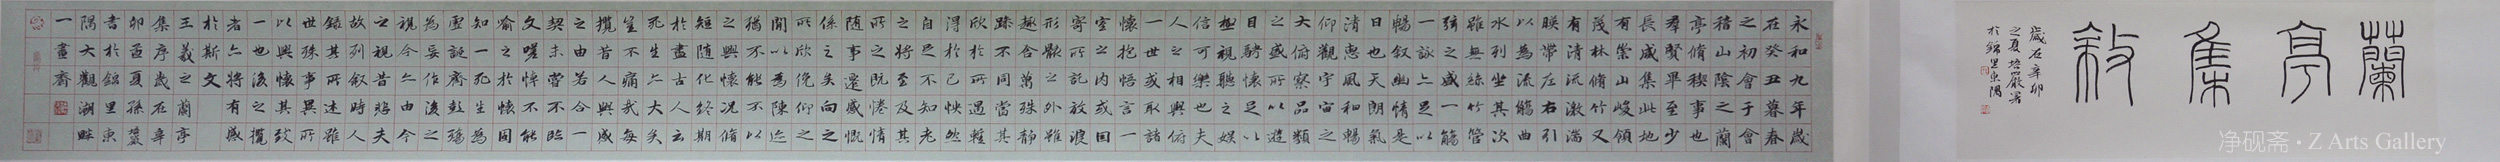 蘭亭集敘
歲在辛卯
之夏培嚴署
於錦里東隅
永和九年歲
在癸丑暮春
之初會于會
稽山陰之蘭
亭脩稧事也
羣賢畢至少
長咸集此地
有崇山峻領
茂林脩竹又
有清流激湍
暎帶左右引
以為流觴曲
水列坐其次
雖無絲竹管
弦之盛一觴
一詠亦足以
暢叙幽情是
日也天朗氣
清惠風和暢
仰觀宇宙之
大俯察品類
之盛所以遊
目騁懷足以
極視聽之娛
信可樂也夫
人之相與俯
一世或取諸
懷抱悟言一
室之內或因
寄所託放浪
形骸之外雖
趣舍萬殊靜
躁不同當其
欣於所遇輕
得於己怏然
自足不知老
之將至及其
所之既惓情
隨事遷感慨
係之矣向之
所欣俛仰之
閒以為陳迹
猶不能不以
之興懷況脩
短隨化終期
於盡古人云
死生亦大矣
豈不痛哉每
攬昔人興感
之由若合一
契未嘗不臨
文嗟悼不能
喻之於懷固
知一死生為
虛誕齊彭殤
為妄作後之
視今亦由今
之視昔悲夫
故列敘時人
錄其所述雖
世殊事異所
以興懷其致
一也後之攬
者亦將有感
於斯文
王羲之蘭亭
集序歲在辛
卯孟夏孫
書於錦里東
隅大觀湖畔
一畫齋
净砚斋·Z Arts Gallery